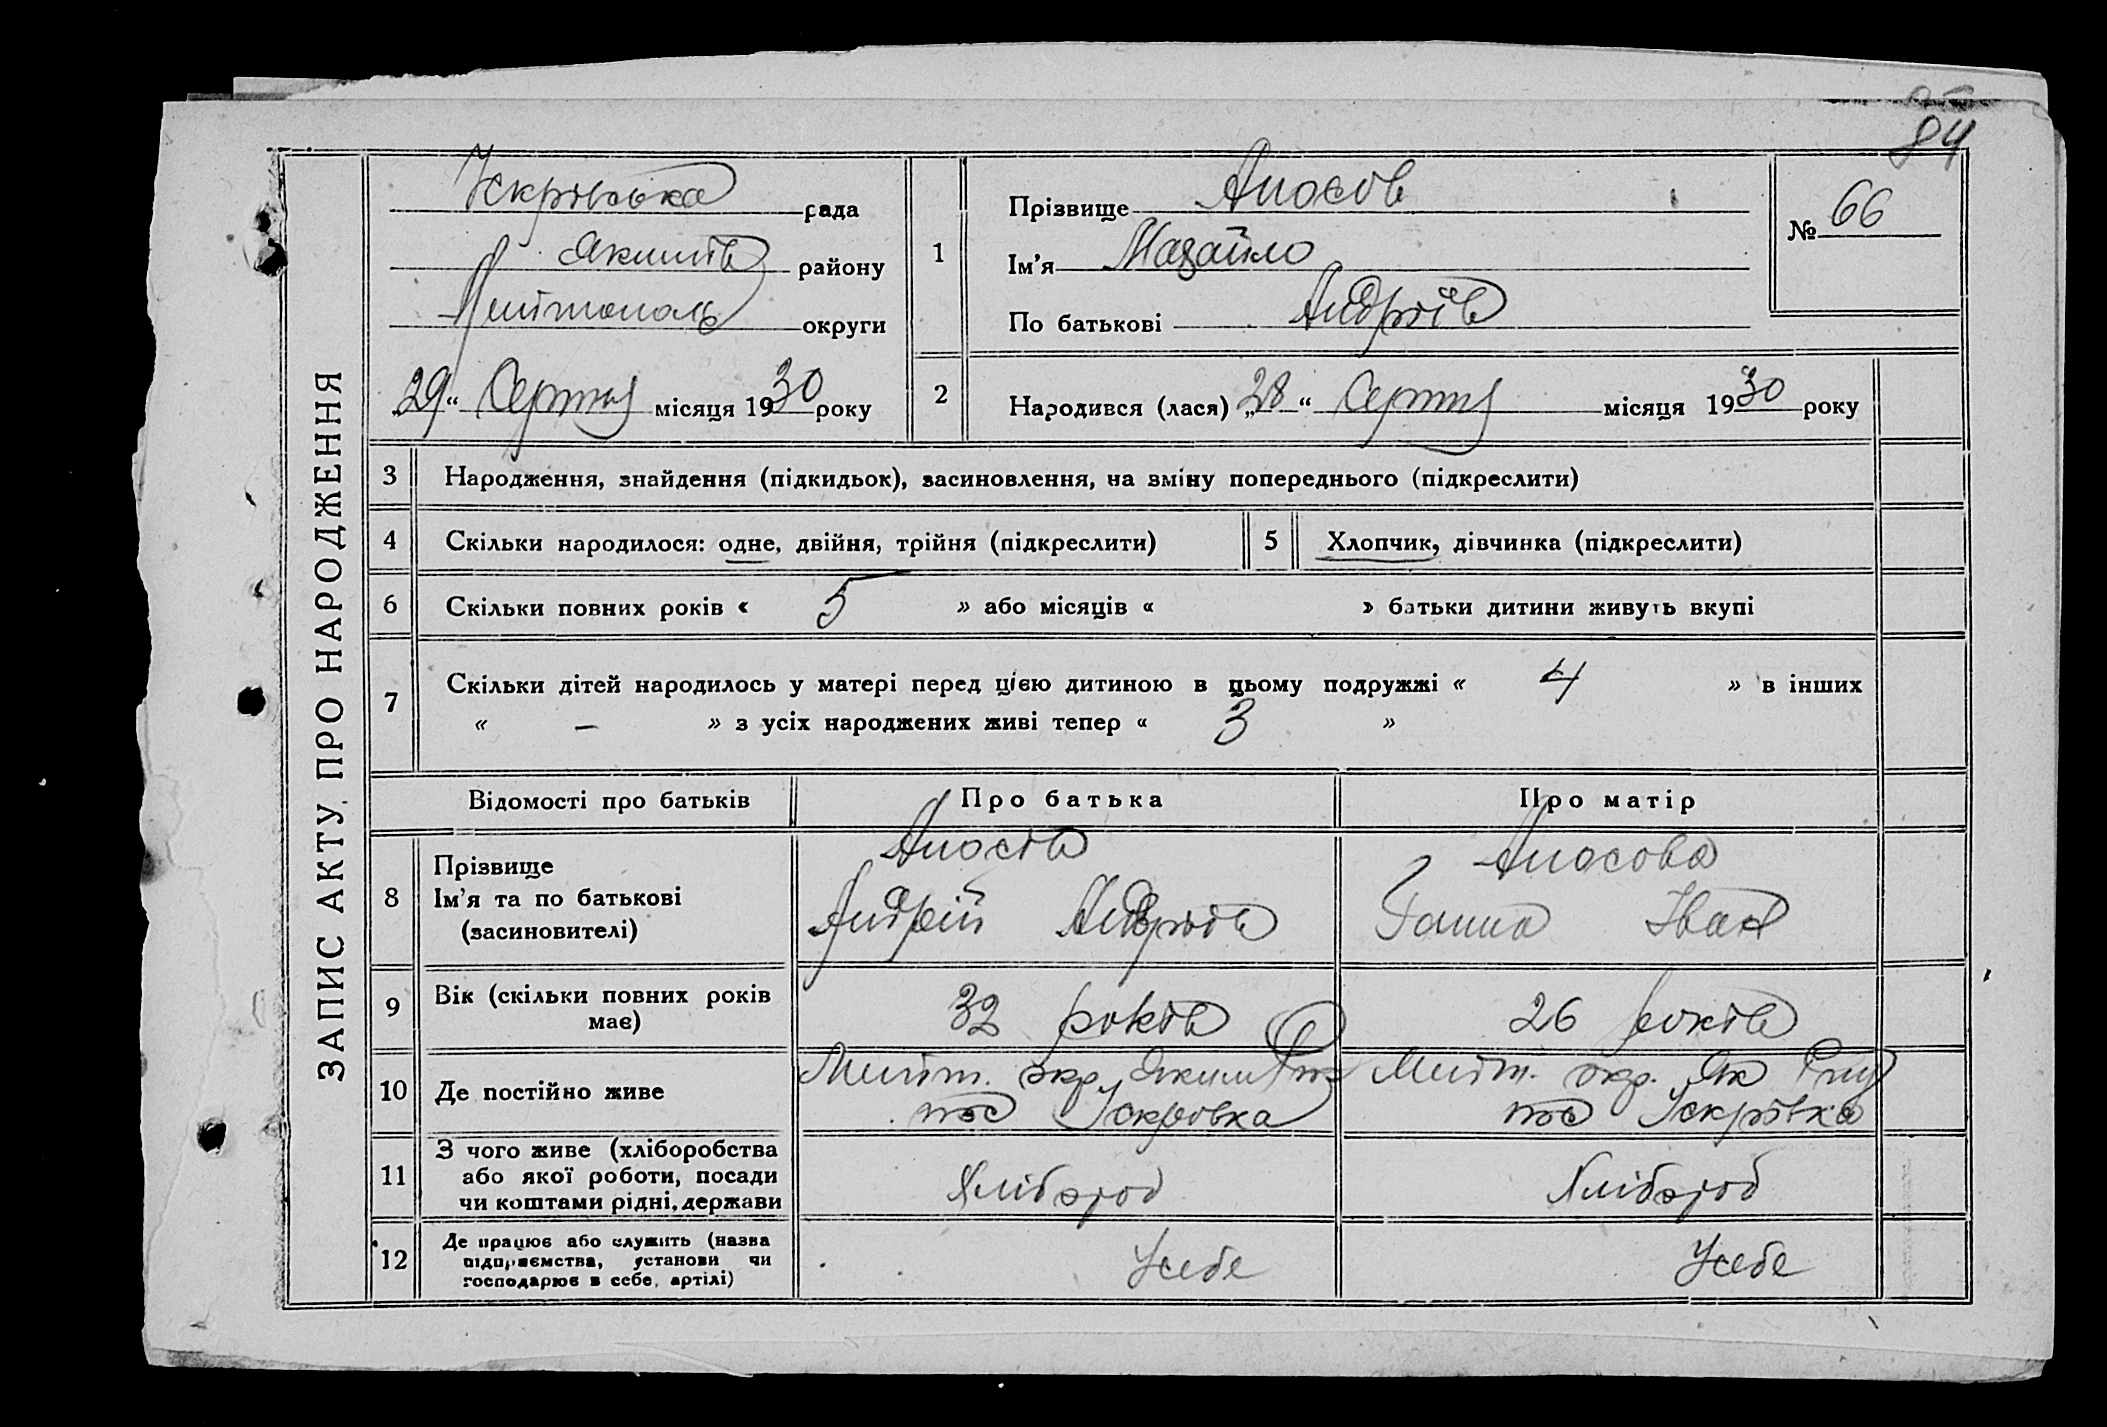 84
ЗАПИС АКТУ ПРО НАРОДЖЕННЯ
Іскрівська рада
Якимів району
Мелітополь округи
„29“ Серпня місяця 1930 року
1
Прізвище Аносов
Ім’я Михайло
По батькові Андріїв
№ 66
2
Народився (лася) „28“ Серпня місяця 1930 року
3 Народження, знайдення (підкидьок), засиновлення, на зміну попереднього (підкреслити)
4 Скільки народилося: одне, двійня, трійня (підкреслити) 5 Хлопчик, дівчинка (підкреслити)
6 Скільки повних років « 5 » або місяців « » батьки дитини живуть вкупі
7 Скільки дітей народилось у матері перед цією дитиною в цьому подружжі « 4 » в інших
« — » з усіх народжених живі тепер « 3 »
Відомості про батьків Про батька Про матір
8 Прізвище
Ім’я та по батькові
(засиновителі)
Аносів
Андрій Андріів
Аносова
Ганна Іван
9 Вік (скільки повних років
має)
32 років
26 років
10 Де постійно живе
Меліт. окр. Яким
пос Іскровка
Меліт. окр. Як
пос Іскрівка
11 З чого живе (хліборобства
або якої роботи, посади
чи коштами рідні, держави
Хлібороб
Хлібороб
12 Де працює або служить (назва
підприємства, установи чи
господарює в себе, артілі)
Усебе
Усебе